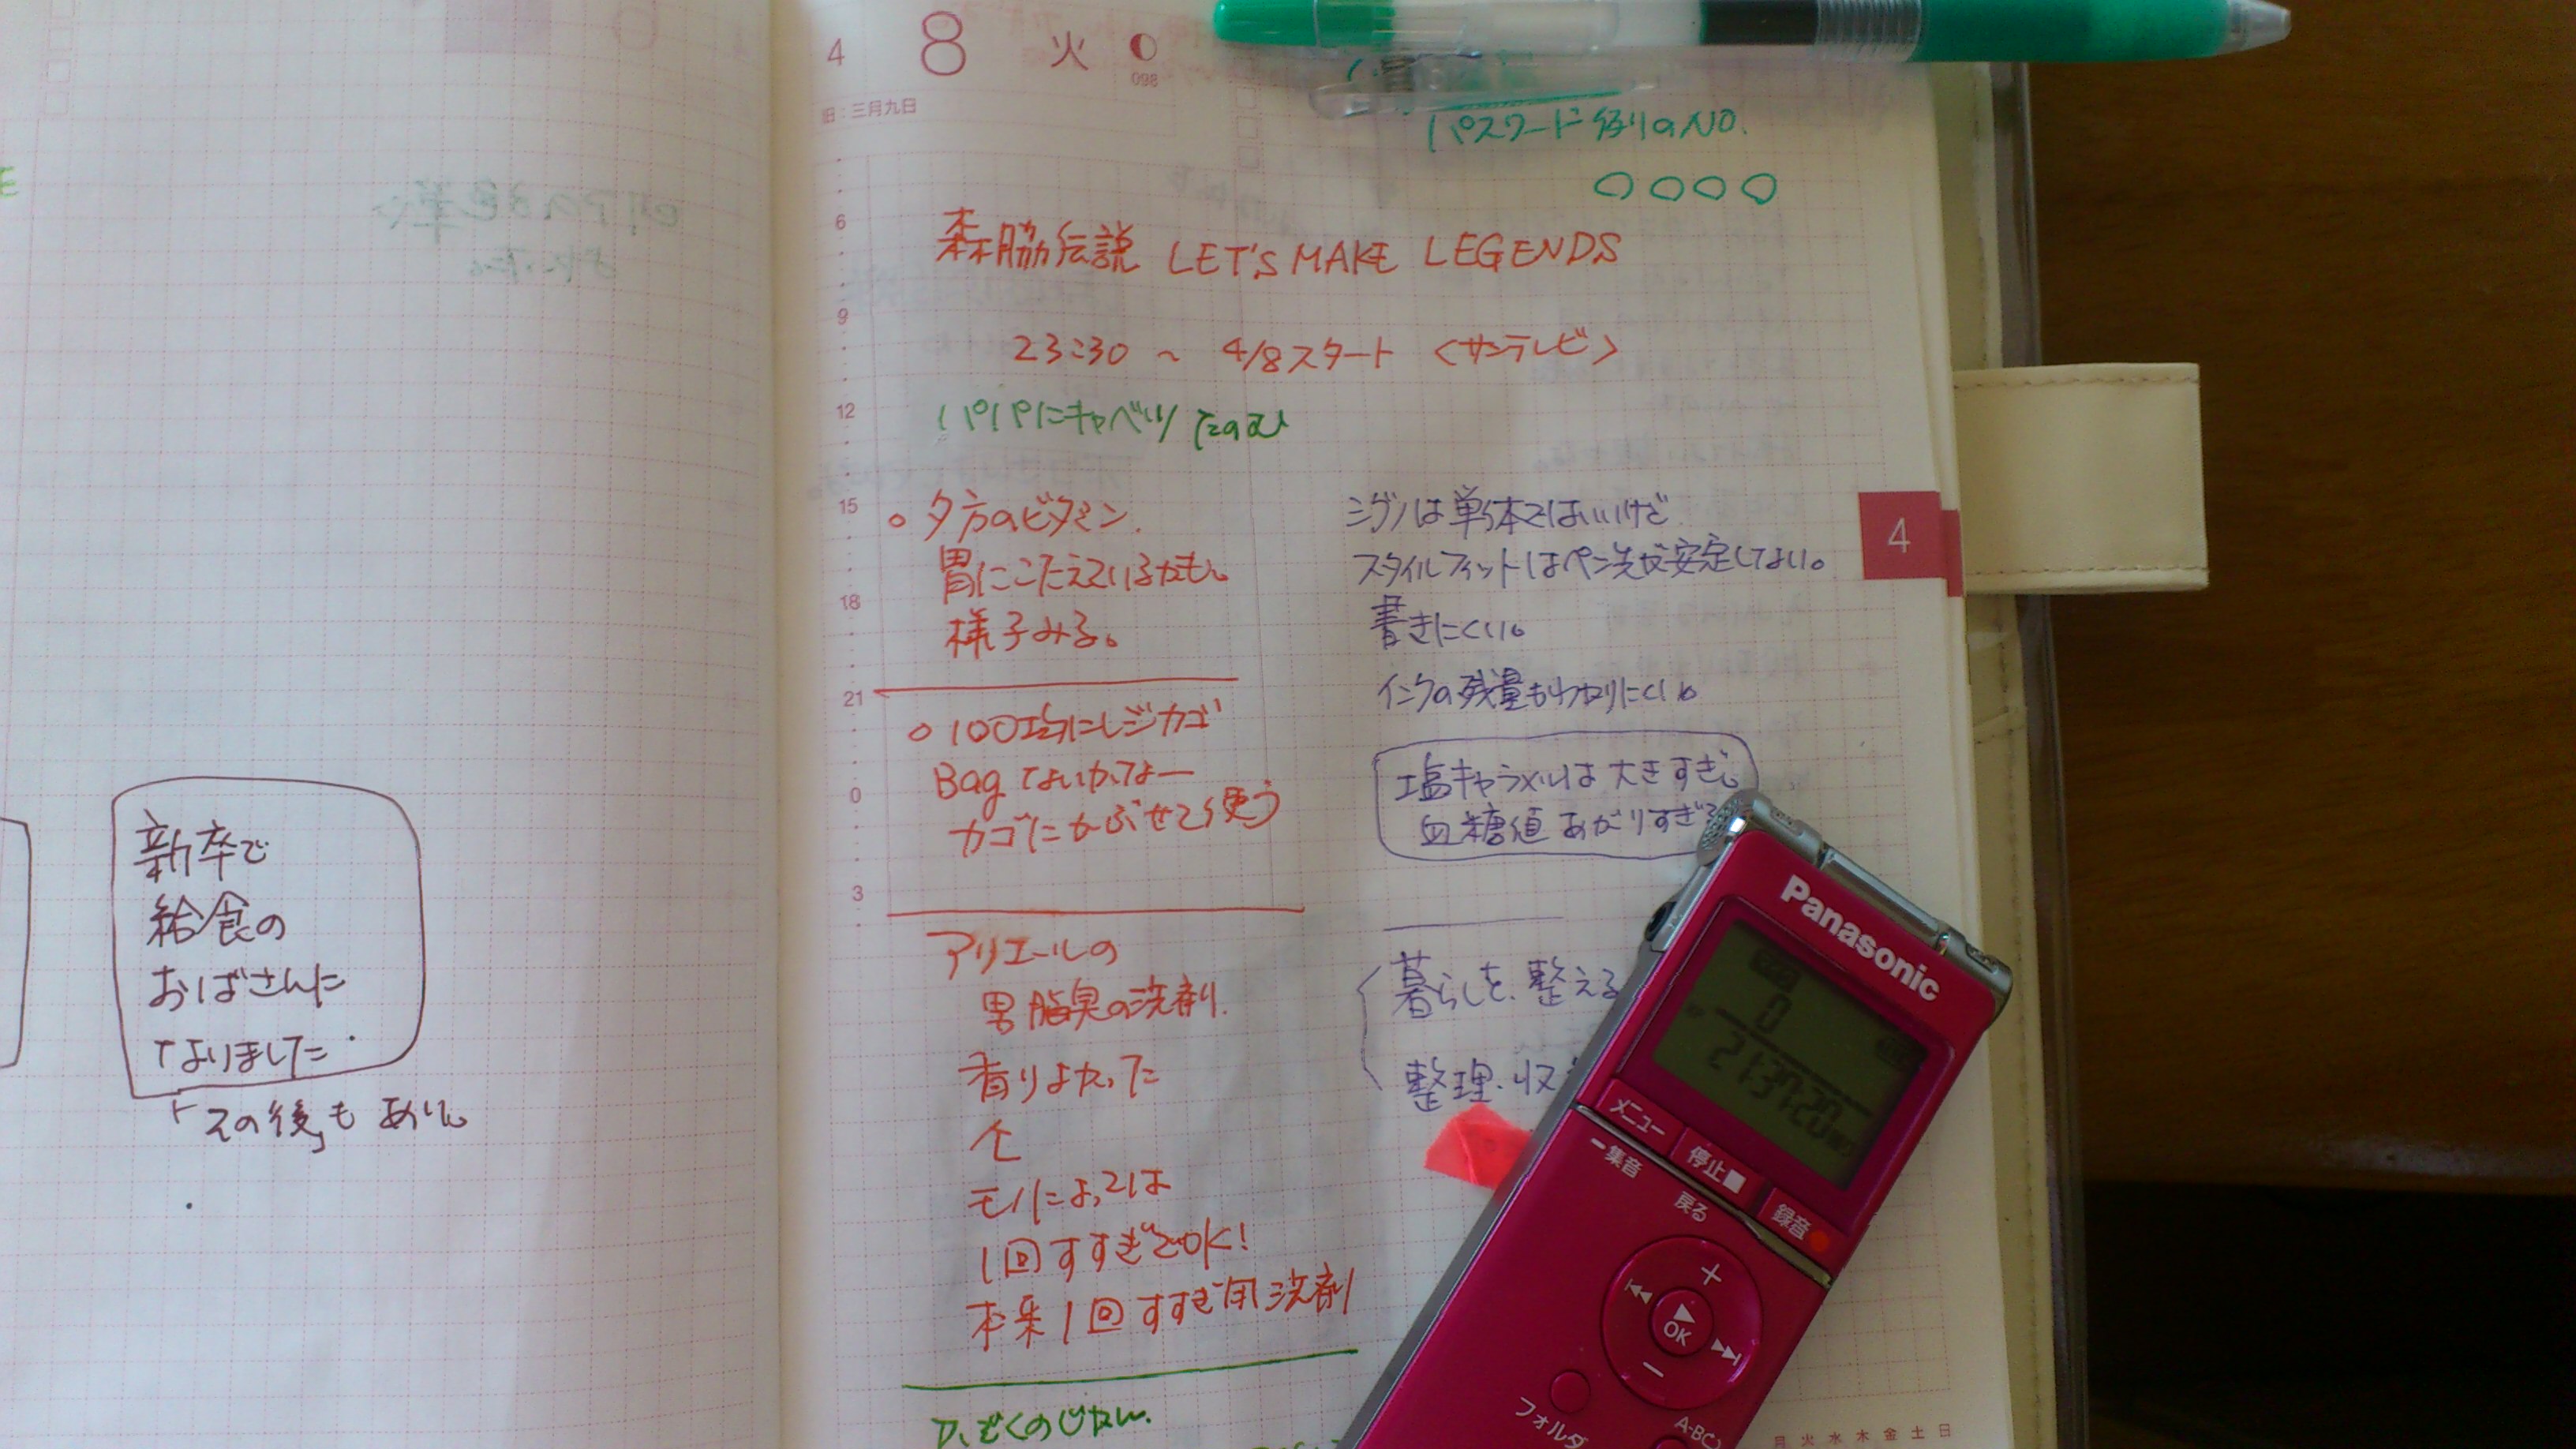 新卒で
給食の
おばさんに
なりました
「その後」もあり。
4 8 火
098
旧:三月九日
パスワード 例のNO.
○○○○
森脇伝説 LET'S MAKE LEGENDS
23:30 ~ 4/8スタート <サンテレビ>
パパにキャベツたのむ
6
9
12
15
18
21
0
3
○ 夕方のビタミン.
胃にこたえているかも。
様子みる。
○ 100均にレジカゴ
Bag ないかなー
カゴにかぶせて使う
アリエールの
男脂臭の洗剤.
香りよかった
モノによっては
1回すすぎでOK!
本来1回すすぎ用洗剤
シグノは単体ではいいけど
スタイルフィットはペン先が安定してない。
書きにくい。
インクの残量もわかりにくい。
塩キャラメルは大きすぎ。
血糖値あがりすぎる
暮らしを、整える
整理・収
4
Panasonic
0
メニュー
停止■
録音
集音
戻る
+
OK
−
フォルダ
A-BC
月 火 水 木 金 土 日